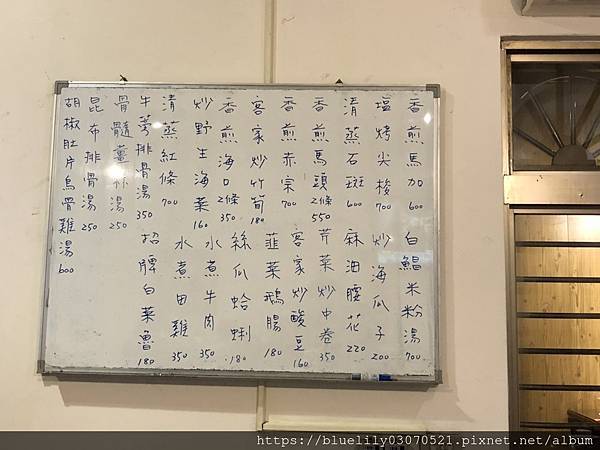 香煎馬加 600
塩烤尖梭 700
清蒸石斑 600
香煎馬頭 2條 550
香煎赤宗 700
客家炒竹筍 180
香煎海口 2條 350
炒野生海菜 160
清蒸紅條 700
牛蒡排骨湯 350
骨髓薑絲湯 250
昆布排骨湯 250
胡椒肚片烏骨雞湯 600
白鯧米粉湯 700
炒海瓜子 200
麻油腰花 220
芹菜炒中卷 350
客家炒酸豆 160
韮菜鵝腸 180
絲瓜蛤蜊 180
水煮牛肉 350
水煮田雞 350
招牌白菜魯 180
https://bluelily03070521.pixnet.net/album